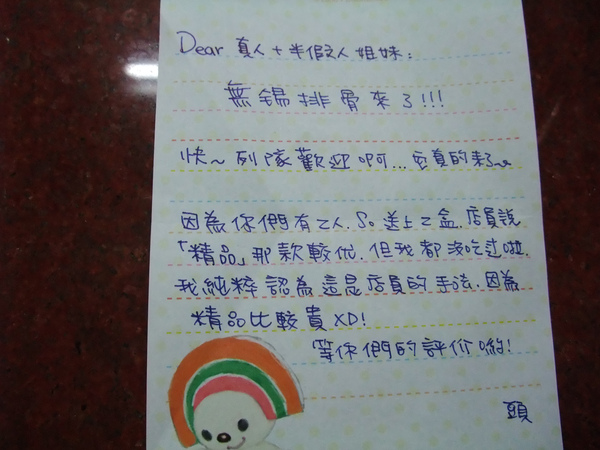 Dear 真人+半假人姐妹:
無錫排骨來了!!!
快~列隊歡迎啊...它真的來了~
因為你們有乙人.So送上乙盒.店員說
「精品」那款較优.但我都沒吃过啦.
我純粹認為這是店員的手法.因為
精品比較貴XD!
等你們的評价喲!
頭